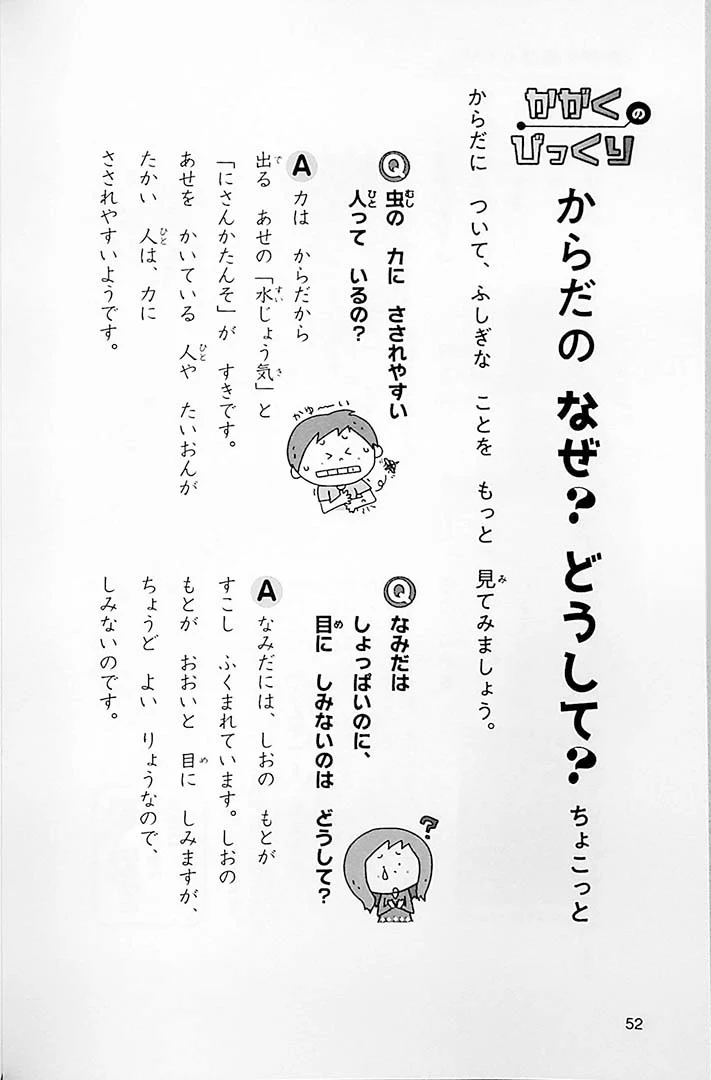 かがくの
びっくり
からだの なぜ? どうして? ちょこっと
からだに ついて、ふしぎな ことを もっと 見てみましょう。
Q 虫の カに さされやすい
人って いるの?
A カは からだから
出る あせの「水じょう気」と
「にさんかたんそ」が すきです。
あせを かいている 人や たいおんが
たかい 人は、カに
さされやすいようです。
かゆ〜い
Q なみだは
しょっぱいのに、
目に しみないのは どうして?
A なみだには、しおの もとが
すこし ふくまれています。しおの
もとが おおいと 目に しみますが、
ちょうど よい りょうなので、
しみないのです。
?
52